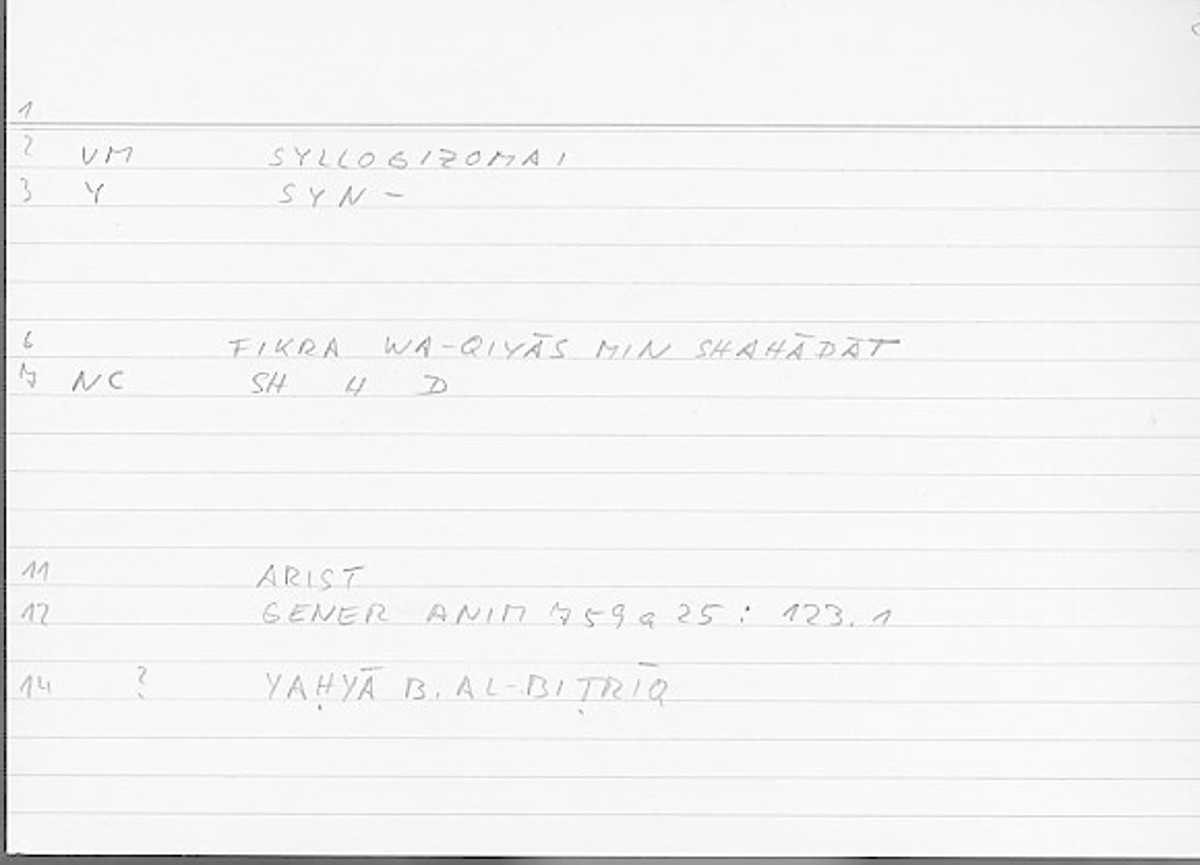 1
2 VM SYLLOGIZOMAI
3 Y SYN-
6 FIKRA WA-QIYĀS MIN SHAHĀDĀT
7 NC SH H D
11 ARIST
12 GENER ANIM 759a25: 123.1
14 ? YAḤYĀ B. AL-BIṬRĪQ